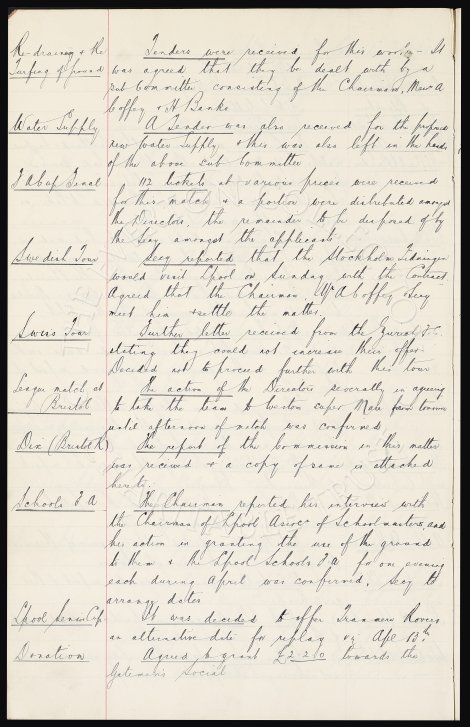 Re-draining & Re Tenders were received for this work - It
Turfing of ground was agreed that they be dealt with by a
sub Committee consisting of the Chairman, Messrs A
Coffey & H Banks
Water Supply A Tender was also received for the proposed
new water supply, & this was also left in the hands
of the above sub Committee
F A Cup Final 112 tickets at various prices were received
for this match & a portion were distributed amongst
the Directors, the remainder to be disposed of by
the Secy amongst the applicants
Swedish Tour Secy reported that the Stockholm Tidningen
would visit Lpool on Sunday with the Contract
Agreed that the Chairman, Mr A Coffey & Secy
meet him & settle the matter.
Swiss Tour Further letter received from the Zurich F.C.
stating they could not increase their offer.
Decided not to proceed further with this tour
League match at The action of the Directors severally in agreeing
Bristol to take the team to Weston super Mare from
until afternoon of match was confirmed
Dix (Bristol R) The report of the Commission in this matter
was received & a copy of same is attached
hereto.
Schools F A The Chairman reported his interview with
the Chairman of Lpool Assocn of Schoolmasters and
his action in granting the use of the ground
to them & the Lpool Schools F A for one evening
each during April was confirmed, Secy to
arrange dates
Lpool Senior Cup It was decided to offer Tranmere Rovers
an alternative date for replay viz Apl 13th
Donation Agreed to grant £2-2-0 towards the
Gatemen's Social